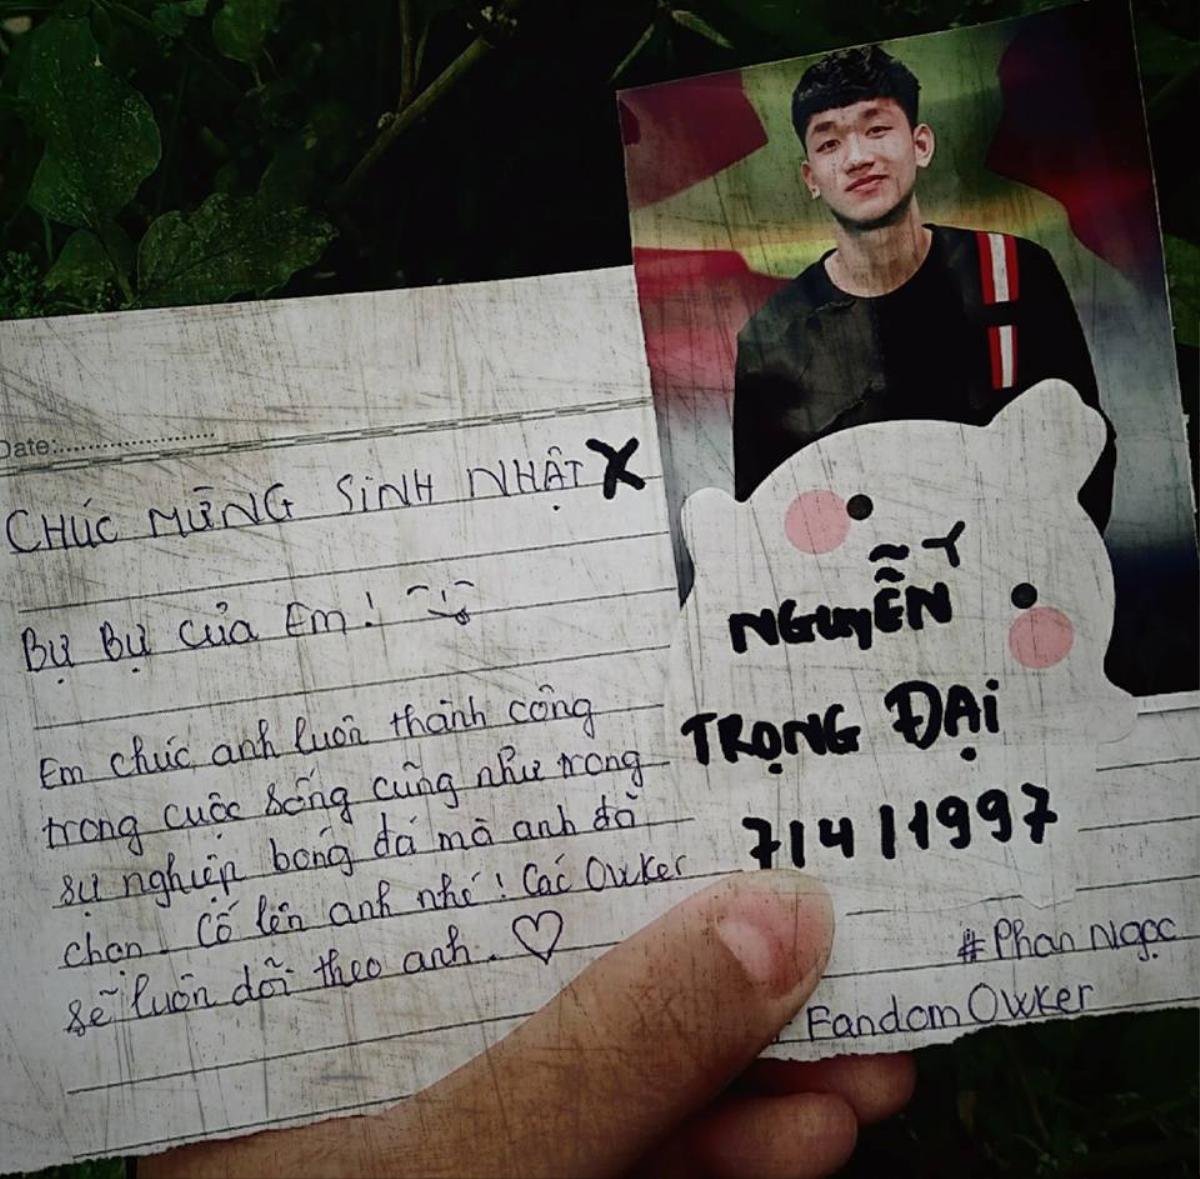 Date:........................
CHÚC MỪNG SINH NHẬT X
Bự Bự của Em!
Em chúc anh luôn thành công
trong cuộc sống cũng như trong
sự nghiệp bóng đá mà anh đã
chọn. Cố lên anh nhé! Các Owker
sẽ luôn dõi theo anh. ♡
NGUYỄN
TRỌNG ĐẠI
7/4/1997
#Phan Ngọc
Fandom Owker